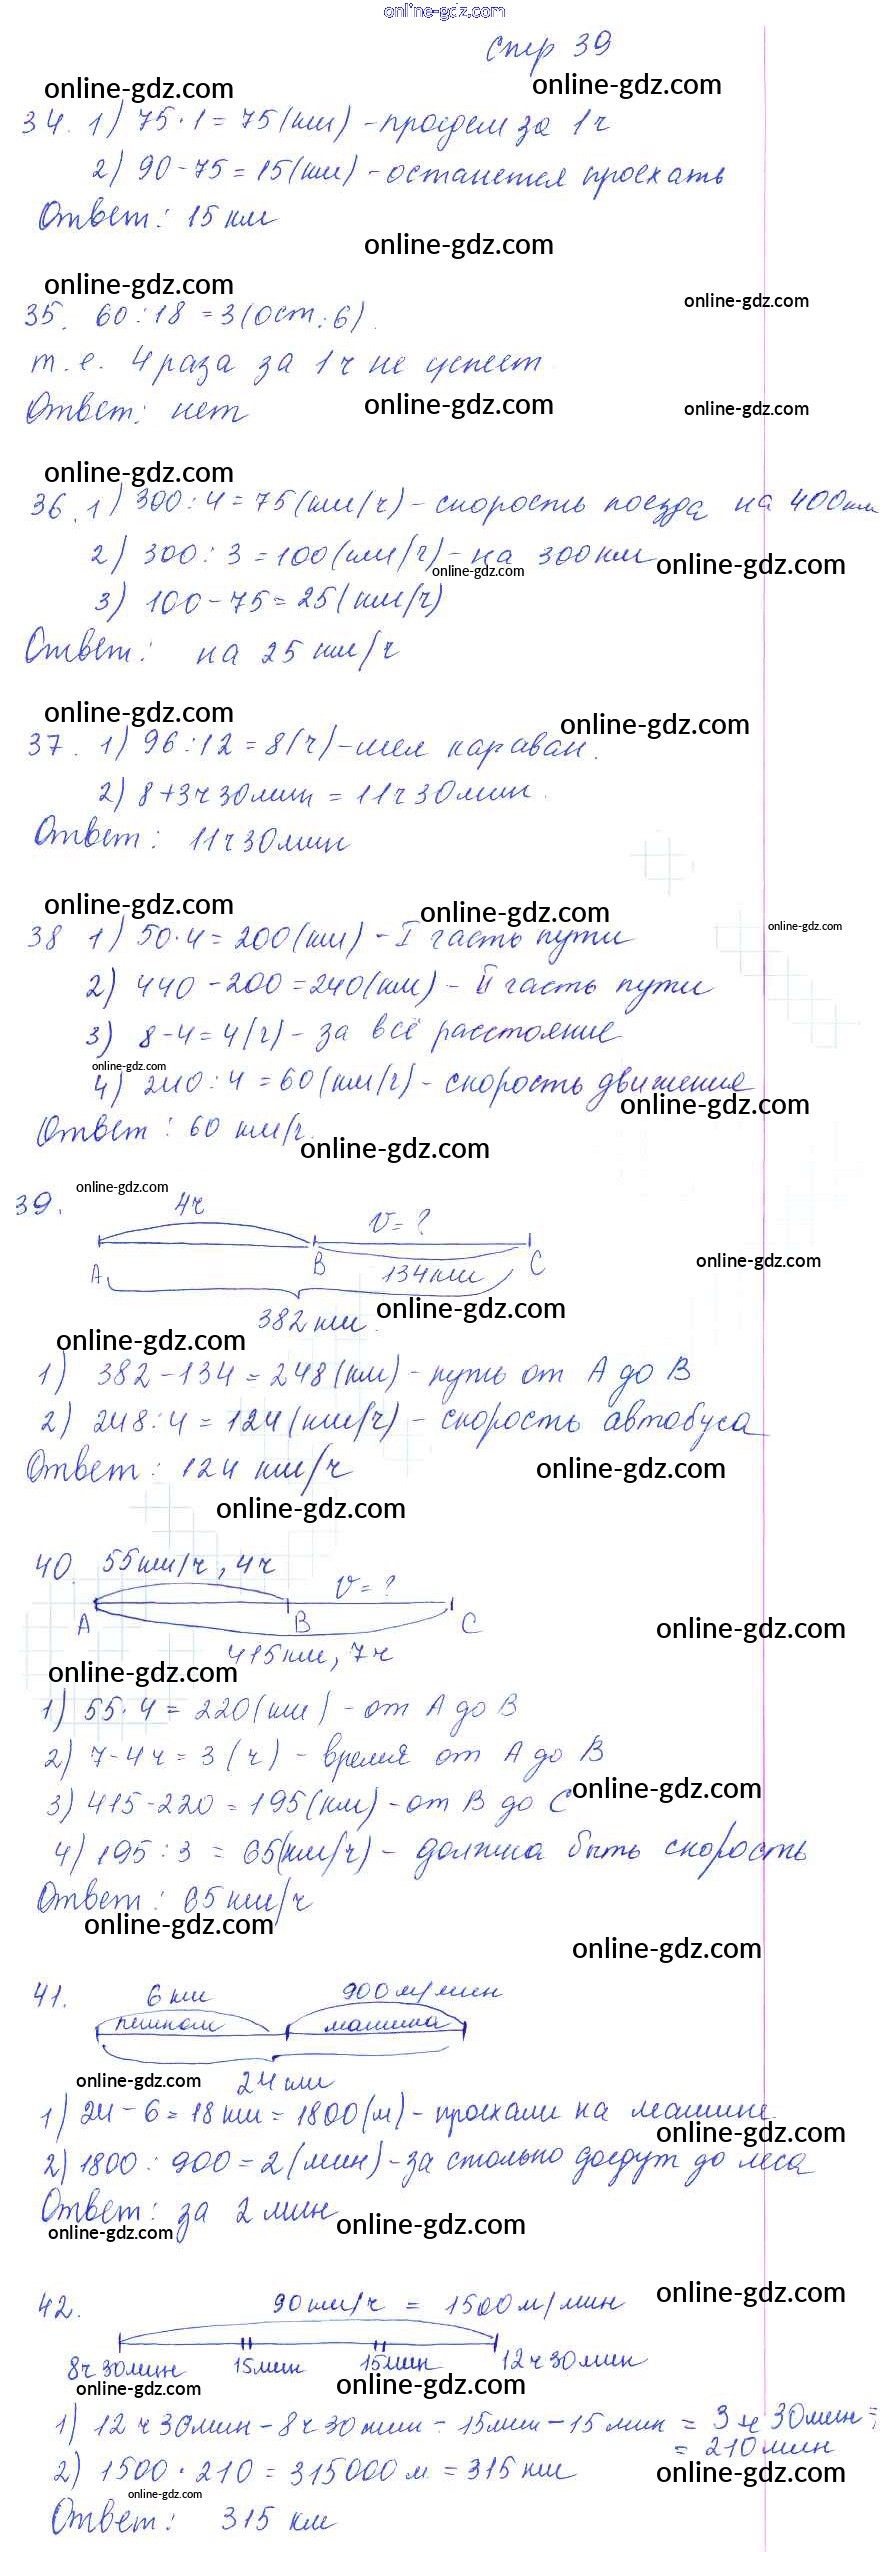 online-gdz.com
стр 39
online-gdz.com
online-gdz.com
34. 1) 75·1=75(км) - проедем за 1ч
2) 90-75=15(км) - останется проехать
Ответ: 15 км
online-gdz.com
online-gdz.com
online-gdz.com
35. 60:18=3(ост.6).
т.е. 4 раза за 1ч не успеет
Ответ: нет
online-gdz.com
online-gdz.com
online-gdz.com
36. 1) 300:4=75(км/ч) - скорость поезда на 400км
2) 300:3=100(км/ч) - на 300км
online-gdz.com
online-gdz.com
3) 100-75=25(км/ч)
Ответ: на 25 км/ч
online-gdz.com
online-gdz.com
37. 1) 96:12=8(ч) - шел караван.
2) 8+3ч30мин=11ч30мин.
Ответ: 11ч30мин
online-gdz.com
online-gdz.com
online-gdz.com
38 1) 50·4=200(км) - I часть пути
2) 440-200=240(км) - II часть пути
3) 8-4=4(ч) - за всё расстояние
online-gdz.com
4) 240:4=60(км/ч) - скорость движения
online-gdz.com
Ответ: 60 км/ч.
online-gdz.com
online-gdz.com
39. 4ч
v=?
A B C
134км
online-gdz.com
382км.
online-gdz.com
online-gdz.com
1) 382-134=248(км) - путь от А до В
2) 248:4=124(км/ч) - скорость автобуса
Ответ: 124 км/ч
online-gdz.com
online-gdz.com
40. 55км/ч, 4ч
v=?
A B C
online-gdz.com
415км, 7ч
online-gdz.com
1) 55·4=220(км) - от А до В
2) 7-4ч=3(ч) - время от А до В
online-gdz.com
3) 415-220=195(км) - от В до С
4) 195:3=65(км/ч) - должна быть скорость
Ответ: 65км/ч
online-gdz.com
online-gdz.com
41. 6км 900м/мин
пешком машина
online-gdz.com
24км
1) 24-6=18км=1800(м) - проехали на машине.
online-gdz.com
2) 1800:900=2(мин) - за столько доедут до леса
Ответ: за 2 мин
online-gdz.com
online-gdz.com
online-gdz.com
42. 90км/ч = 1500м/мин
8ч30мин 15мин 15мин 12ч30мин
online-gdz.com
online-gdz.com
1) 12ч30мин-8ч30мин-15мин-15мин=3ч30мин=
=210мин
2) 1500·210=315000м=315км
online-gdz.com
online-gdz.com
Ответ: 315 км